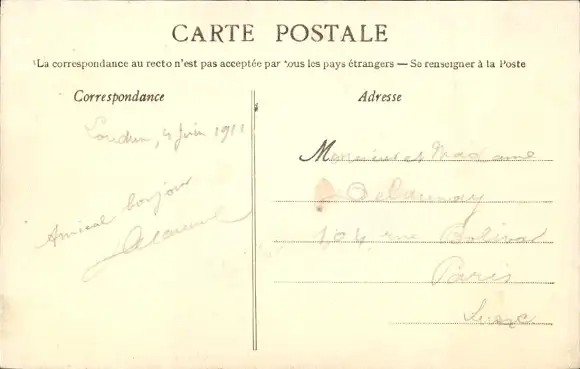 CARTE POSTALE
La correspondance au recto n'est pas acceptée par tous les pays étrangers — Se renseigner à la Poste
Correspondance
Adresse
Loudun, 4 Juin 1911
Amical bonjour
Monsieur et Madame
Delaunay
104 rue Bolivar
Paris